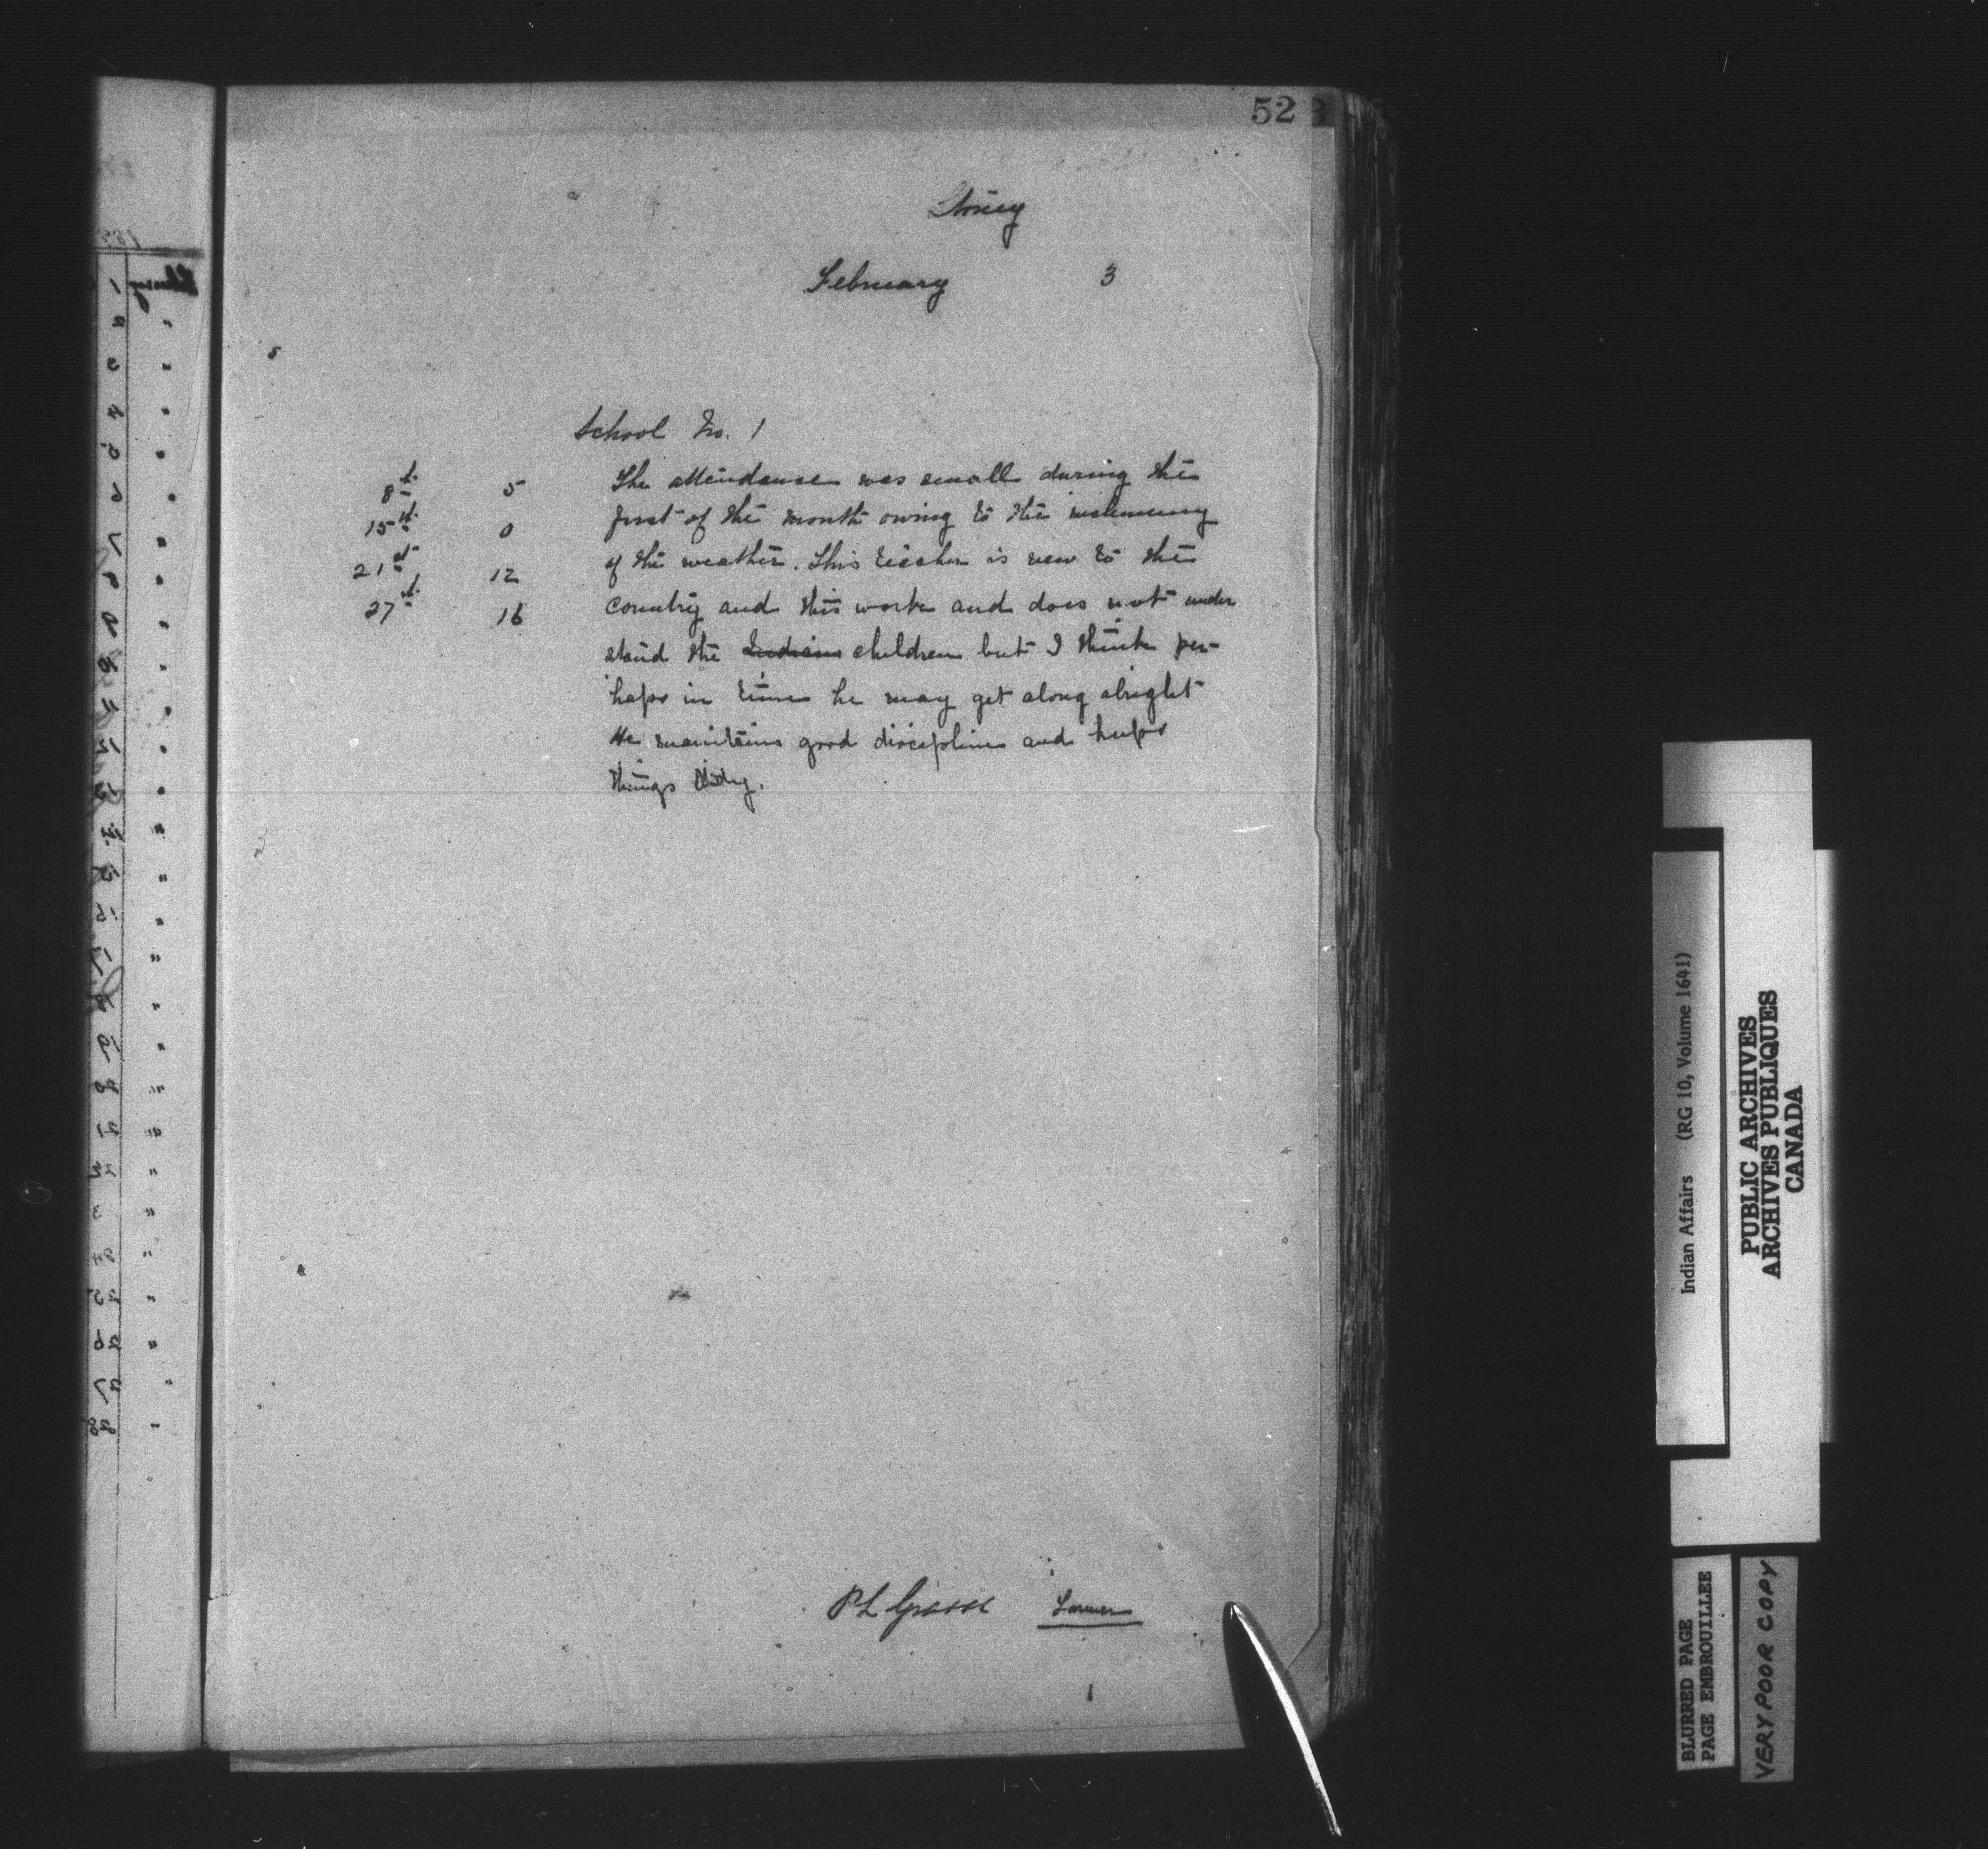 52
Stoney
February 3
School No. 1
8th 5 The attendance was small during the
15th 0 first of the month owing to the inclemency
21st 12 of the weather. This teacher is new to the
27th 16 country and this work and does not under
stand the Indian children but I think per-
haps in time he may get along alright
He maintains good discipline and keeps
things tidy.
P L Grasse Farmer
Indian Affairs (RG 10, Volume 1641)
PUBLIC ARCHIVES
ARCHIVES PUBLIQUES
CANADA
BLURRED PAGE
PAGE EMBROUILLEE
VERY POOR COPY